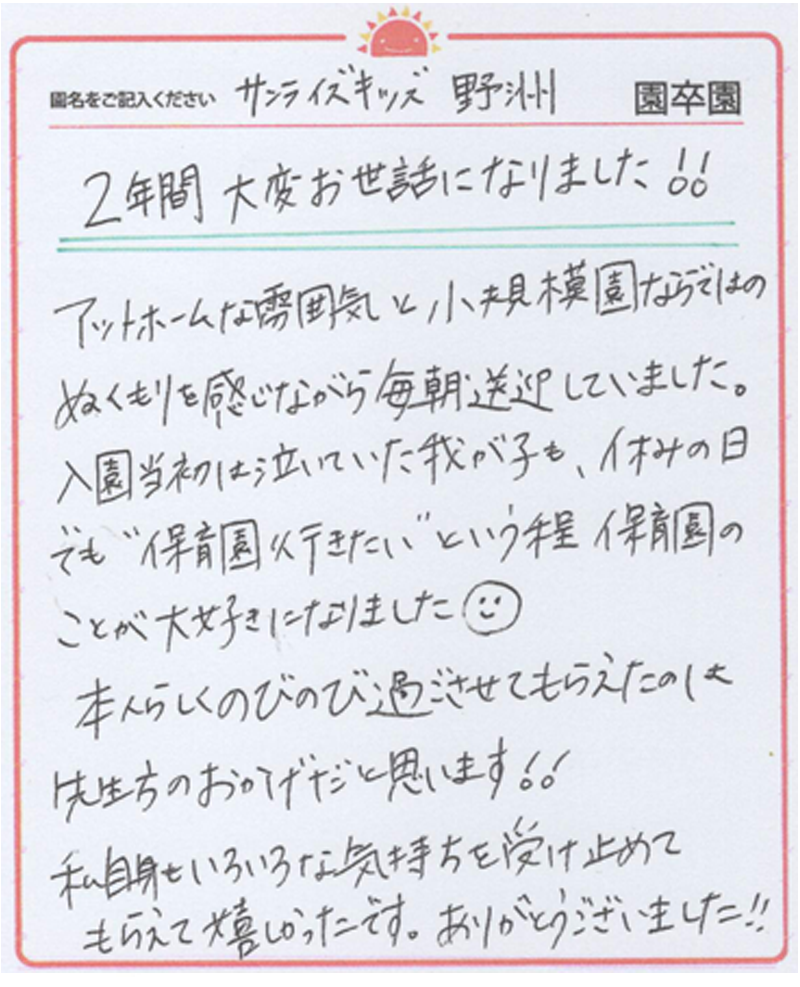 園名をご記入ください サンライズキッズ 野洲 園卒園
2年間 大変お世話になりました!!
アットホームな雰囲気と小規模園ならではの
ぬくもりを感じながら毎朝送迎していました。
入園当初は泣いていた我が子も、休みの日
でも“保育園行きたい”という程 保育園の
ことが大好きになりました
本人らしくのびのび過ごさせてもらえたのは
先生方のおかげだと思います!!
私自身もいろいろな気持ちを受け止めて
もらえて嬉しかったです。ありがとうございました!!